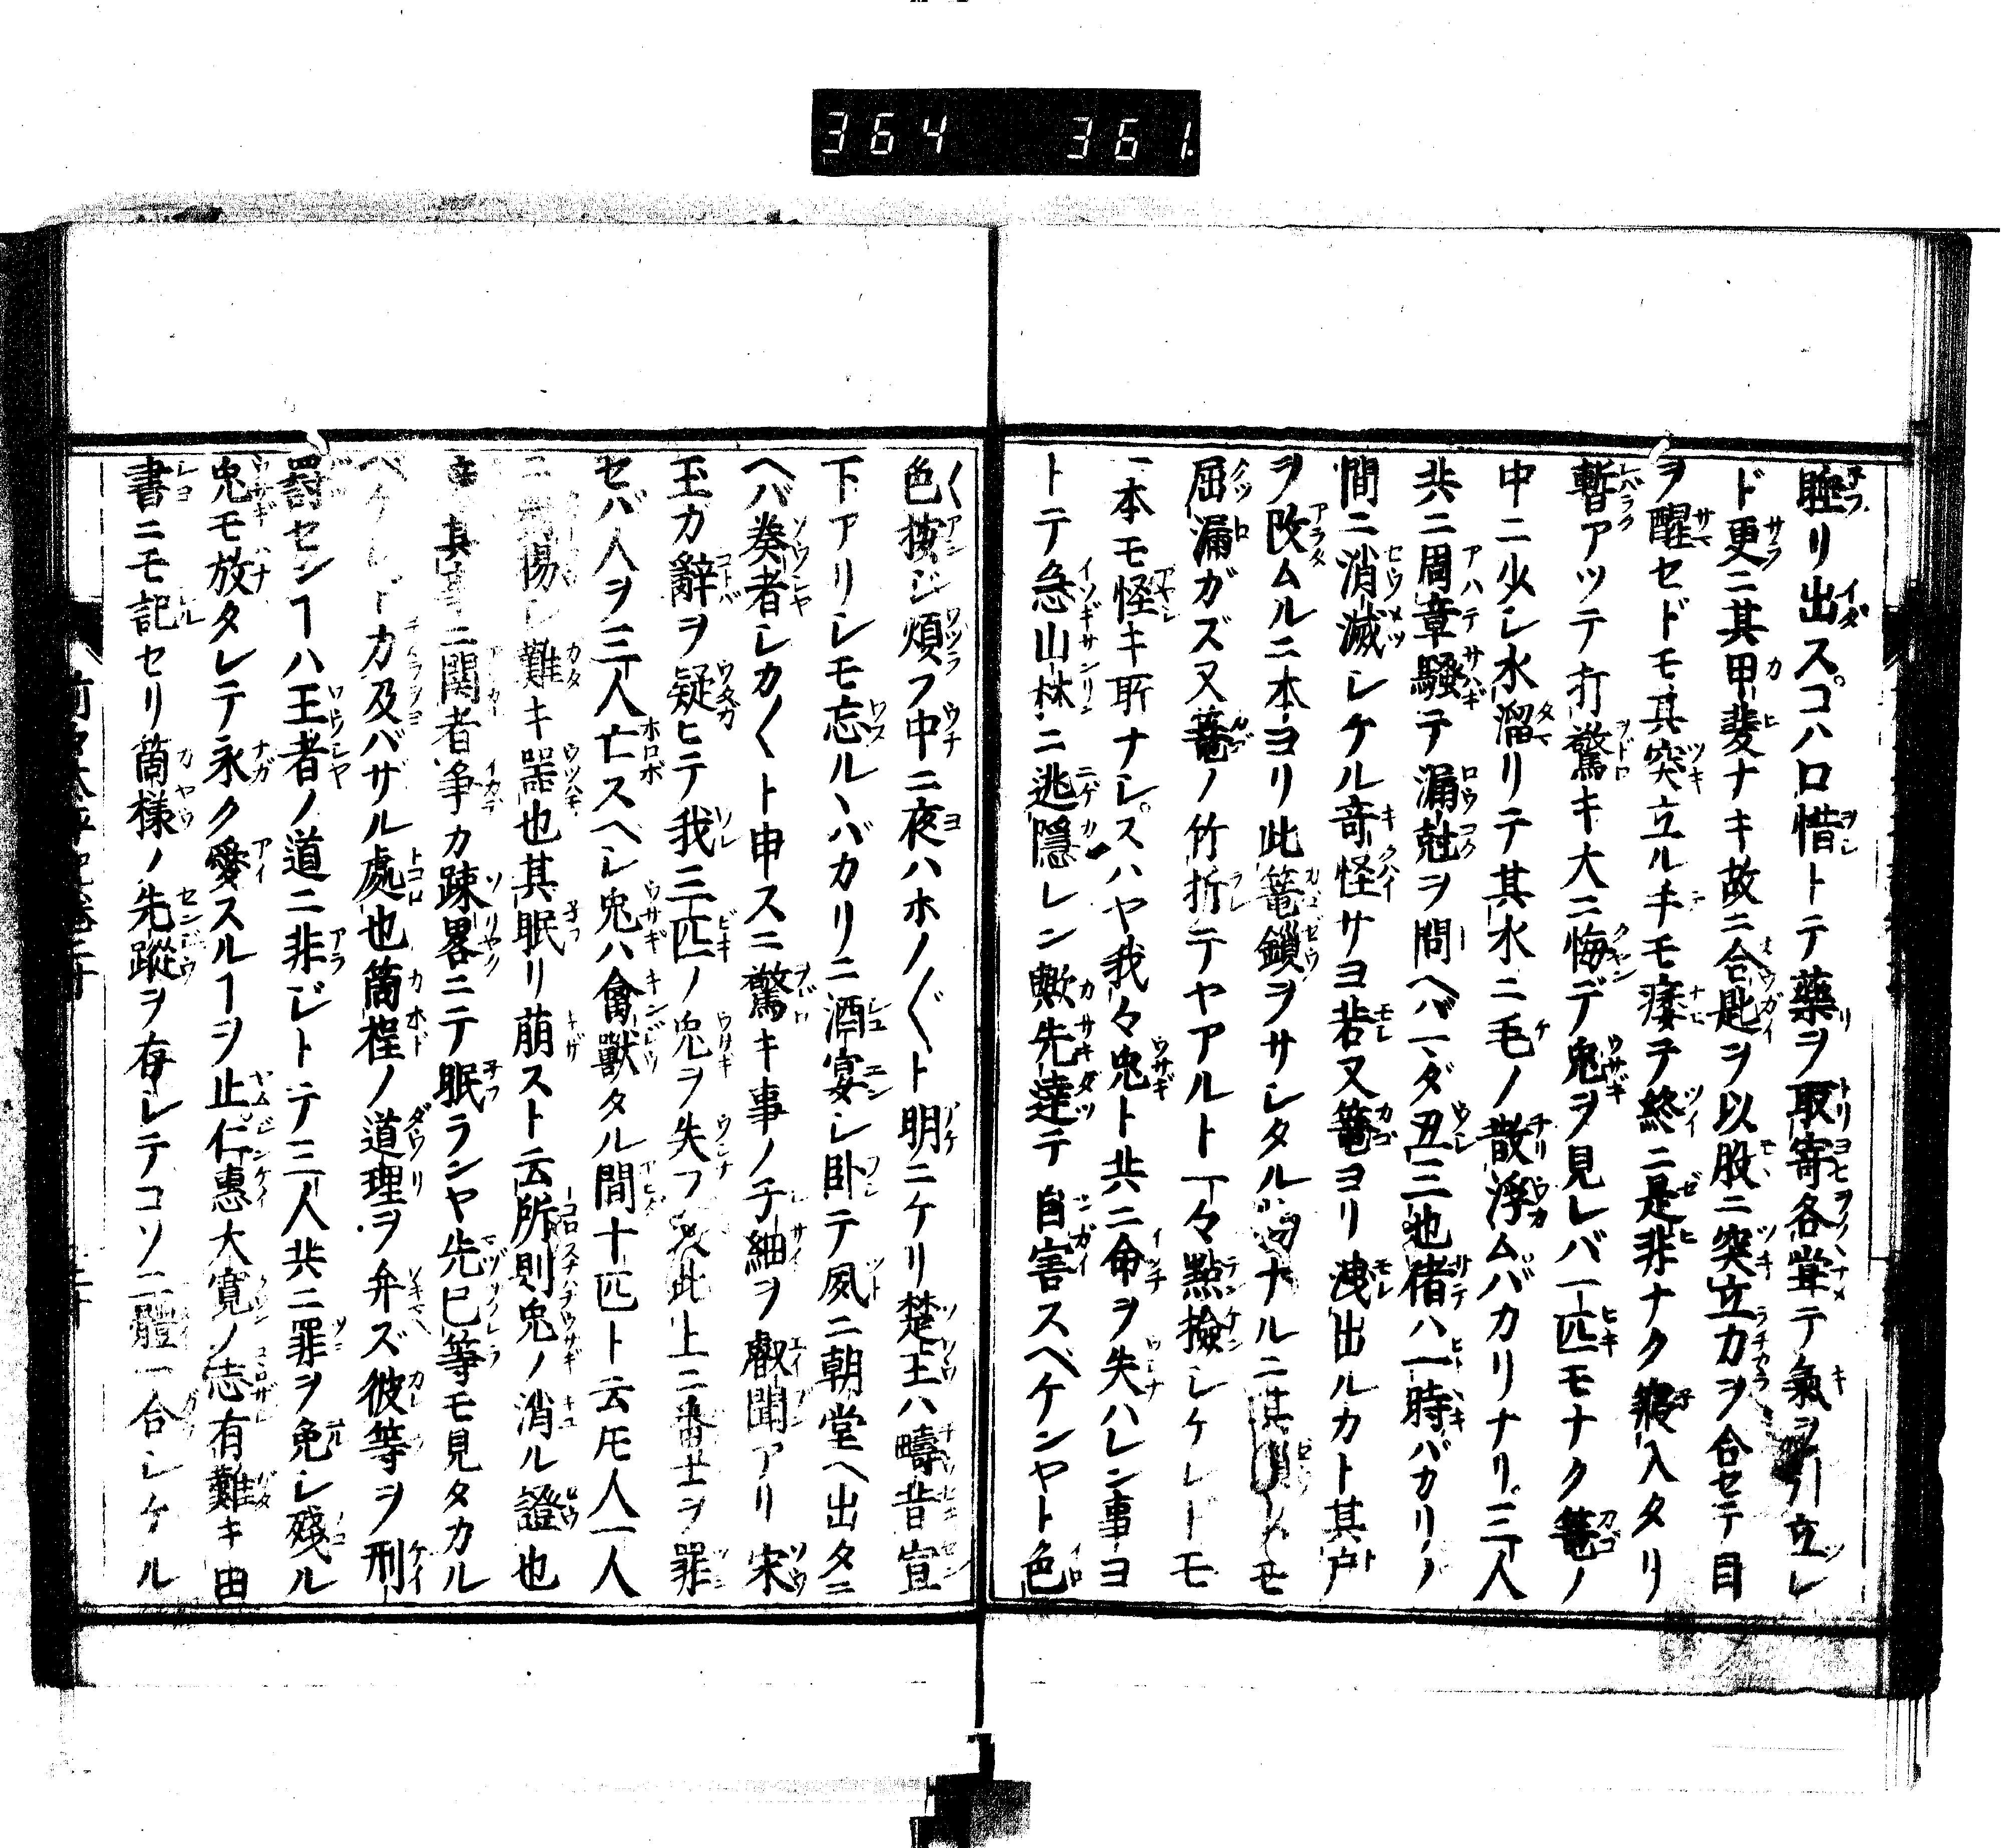 364 361
睡リ出スコハ口惜トテ藥ヲ取寄各甞テ氣ヲ引立レ
ド更ニ其甲斐ナキ故ニ合匙ヲ以股ニ突立力ヲ合セテ目
ヲ醒セドモ其突立ル手モ痿テ終ニ是非ナク寝入タリ
暫アツテ打驚キ大ニ悔デ兎ヲ見レバ一匹モナク篭ノ
中ニ少シ水溜リテ其水ニ毛ノ散浮ムバカリナリ三人
共ニ周章騒テ漏尅ヲ問ヘバ一ダ丑三也偖ハ一時バカリノ
間ニ消滅シケル奇怪サヨ若又篭ヨリ洩出ルカト其戸
ヲ改ムルニ本ヨリ此篭鎖ヲサシタル ナルニ其 モ
屈漏ガズ又篭ノ竹折テヤアルト一々點撿シケレドモ
一本モ怪キ所ナシスハヤ我々兎ト共ニ命ヲ失ハレン事ヨ
トテ急山林ニ逃隠レン歟先達テ自害スベケンヤト色
〱色按ジ煩フ中ニ夜ハホノ〲ト明ニケリ楚王ハ疇昔宣
下アリシモ忘ルヽバカリニ酒宴シ卧テ夙ニ朝堂ヘ出タニ
ヘバ奏者シカ〱ト申スニ驚キ事ノ子細ヲ叡聞アリ宋
玉カ辭ヲ疑ヒテ我三匹ノ兎ヲ失フ 此上ニ番士ヲ罪
セバ人ヲ三人亡スヘシ兎ハ禽獸タル間十匹ト云𪜈人一人
ニ 揚シ難キ器也其眠リ萠スト云所則兎ノ消ル證也
其事ニ関者争カ踈畧ニテ眠ランヤ先已等モ見タカル
ヘケレドカ及バザル處也箇程ノ道理ヲ弁ズ彼等ヲ刑
罸センヿハ王者ノ道ニ非ジトテ三人共ニ罪ヲ免シ殘ル
兎モ放タレテ永ク愛スルヿヲ止仁惠大寛ノ志有難キ由
書ニモ記セリ箇樣ノ先蹤ヲ存シテコソ二體一合シケル